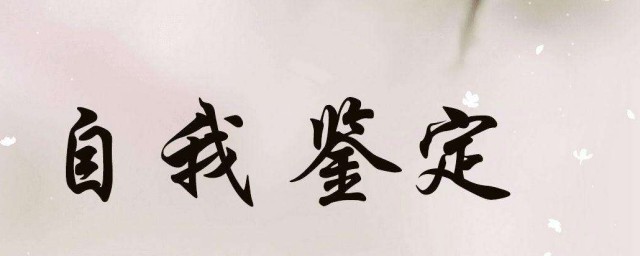 自我鉴定